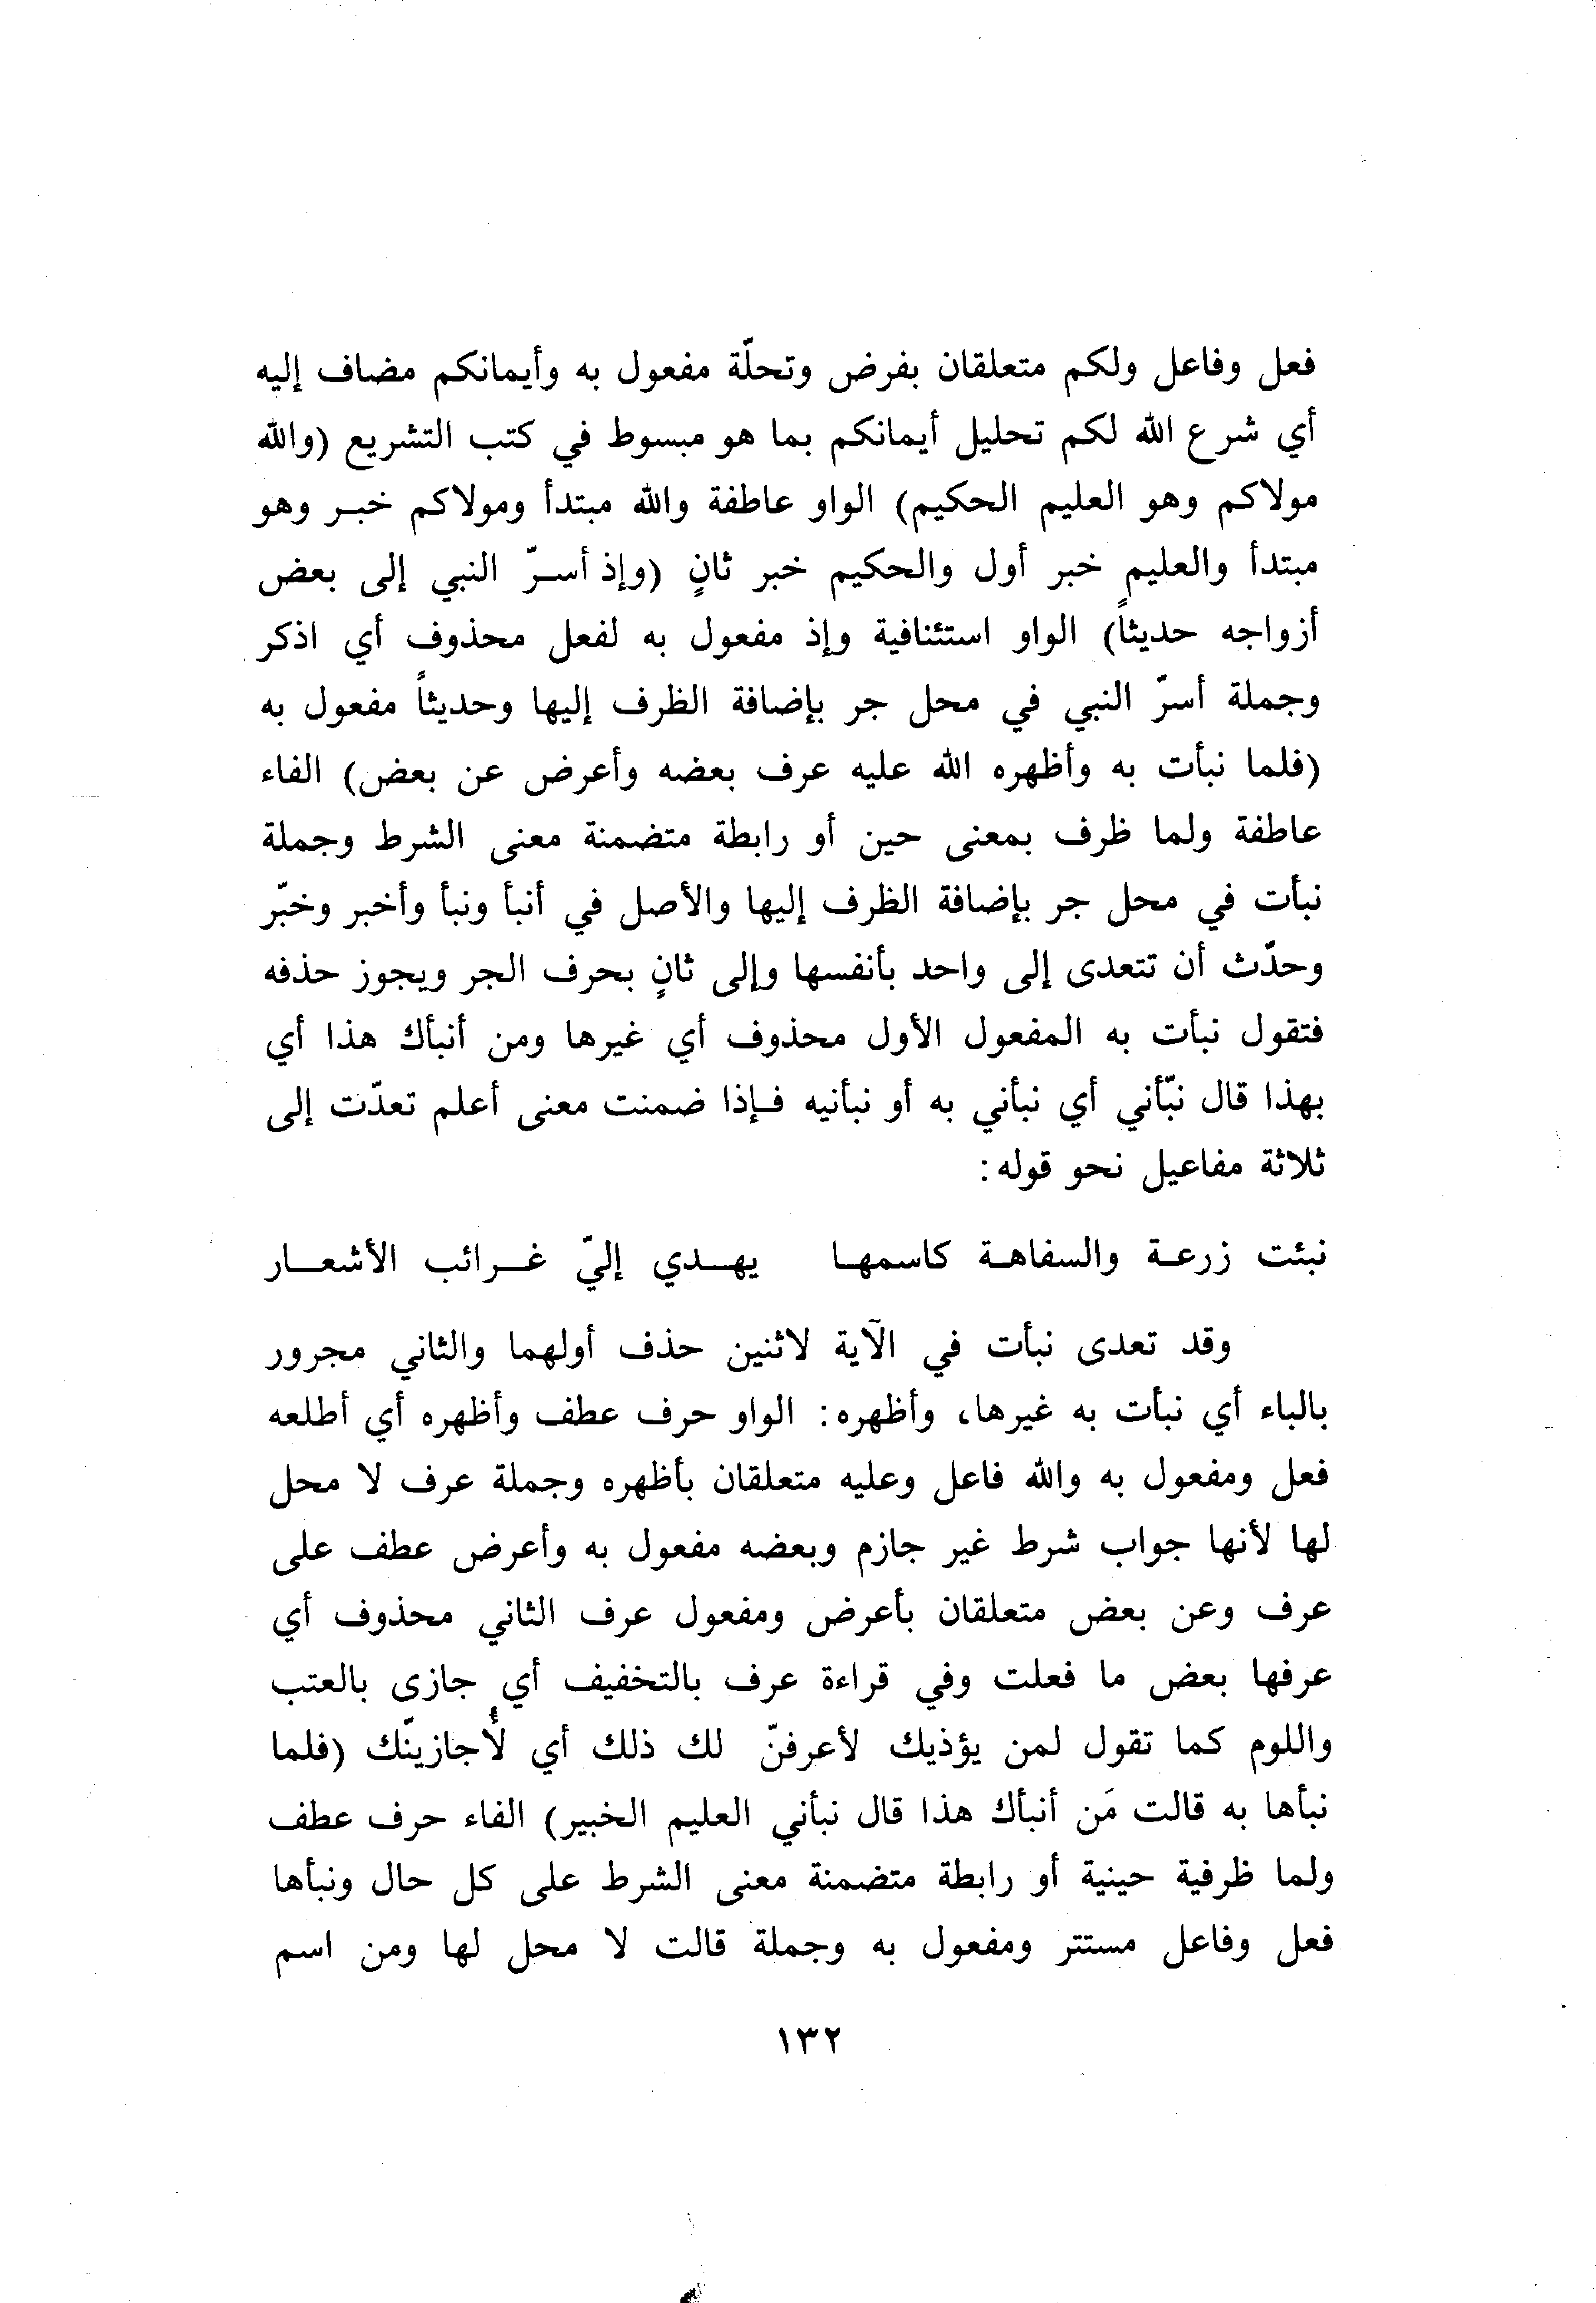 فعل وفاعل ولكم متعلقان بفرض وتحلّة مفعول به وأيمانكم مضاف إليه
أي شرع الله لكم تحليل أيمانكم بما هو مبسوط في كتب التشريع (والله
مولاكم وهو العليم الحكيم) الواو عاطفة والله مبتدأ ومولاكم خبر وهو
مبتدأ والعليم خبر أول والحكيم خبر ثانٍ (وإذ أسرّ النبي إلى بعض
أزواجه حديثاً) الواو استئنافية وإذ مفعول به لفعل محذوف أي اذكر
وجملة أسرّ النبي في محل جر بإضافة الظرف إليها وحديثاً مفعول به
(فلما نبأت به وأظهره الله عليه عرف بعضه وأعرض عن بعض) الفاء
عاطفة ولما ظرف بمعنى حين أو رابطة متضمنة معنى الشرط وجملة
نبأت في محل جر بإضافة الظرف إليها والأصل في أنبأ ونبأ وأخبر وخبّر
وحدّث أن تتعدى إلى واحد بأنفسها وإلى ثانٍ بحرف الجر ويجوز حذفه
فتقول نبأت به المفعول الأول محذوف أي غيرها ومن أنبأك هذا أي
بهذا قال نبّأني أي نبأني به أو نبأنيه فإذا ضمنت معنى أعلم تعدّت إلى
ثلاثة مفاعيل نحو قوله:
نبئت زرعة والسفاهة كاسمها يهدي إليّ غرائب الأشعار
وقد تعدى نبأت في الآية لاثنين حذف أولهما والثاني مجرور
بالباء أي نبأت به غيرها، وأظهره: الواو حرف عطف وأظهره أي أطلعه
فعل ومفعول به والله فاعل وعليه متعلقان بأظهره وجملة عرف لا محل
لها لأنها جواب شرط غير جازم وبعضه مفعول به وأعرض عطف على
عرف وعن بعض متعلقان بأعرض ومفعول عرف الثاني محذوف أي
عرفها بعض ما فعلت وفي قراءة عرف بالتخفيف أي جازى بالعتب
واللوم كما تقول لمن يؤذيك لأعرفنّ لك ذلك أي لأُجازينّك (فلما
نبأها به قالت مَن أنبأك هذا قال نبأني العليم الخبير) الفاء حرف عطف
ولما ظرفية حينية أو رابطة متضمنة معنى الشرط على كل حال ونبأها
فعل وفاعل مستتر ومفعول به وجملة قالت لا محل لها ومن اسم
١٣٢